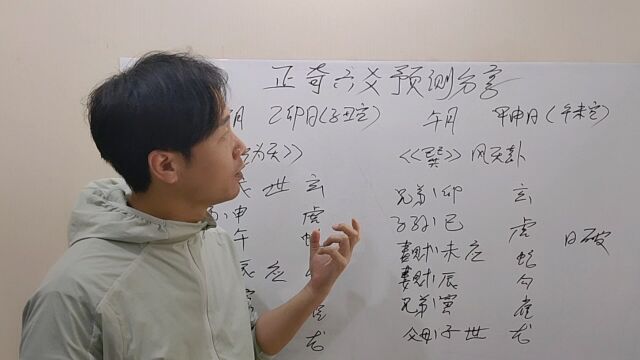 正奇六爻预测分享
月 乙卯日(子丑空)
为天》
世 玄
申 虎
午
辰 应
龙
午月 甲申日(午未空)
《《巽》 风天卦
兄弟、卯 玄
子孙、巳 虎
妻财、未 应 蛇 日破
妻财、辰 勾
兄弟、寅 雀
父母、子 世 龙